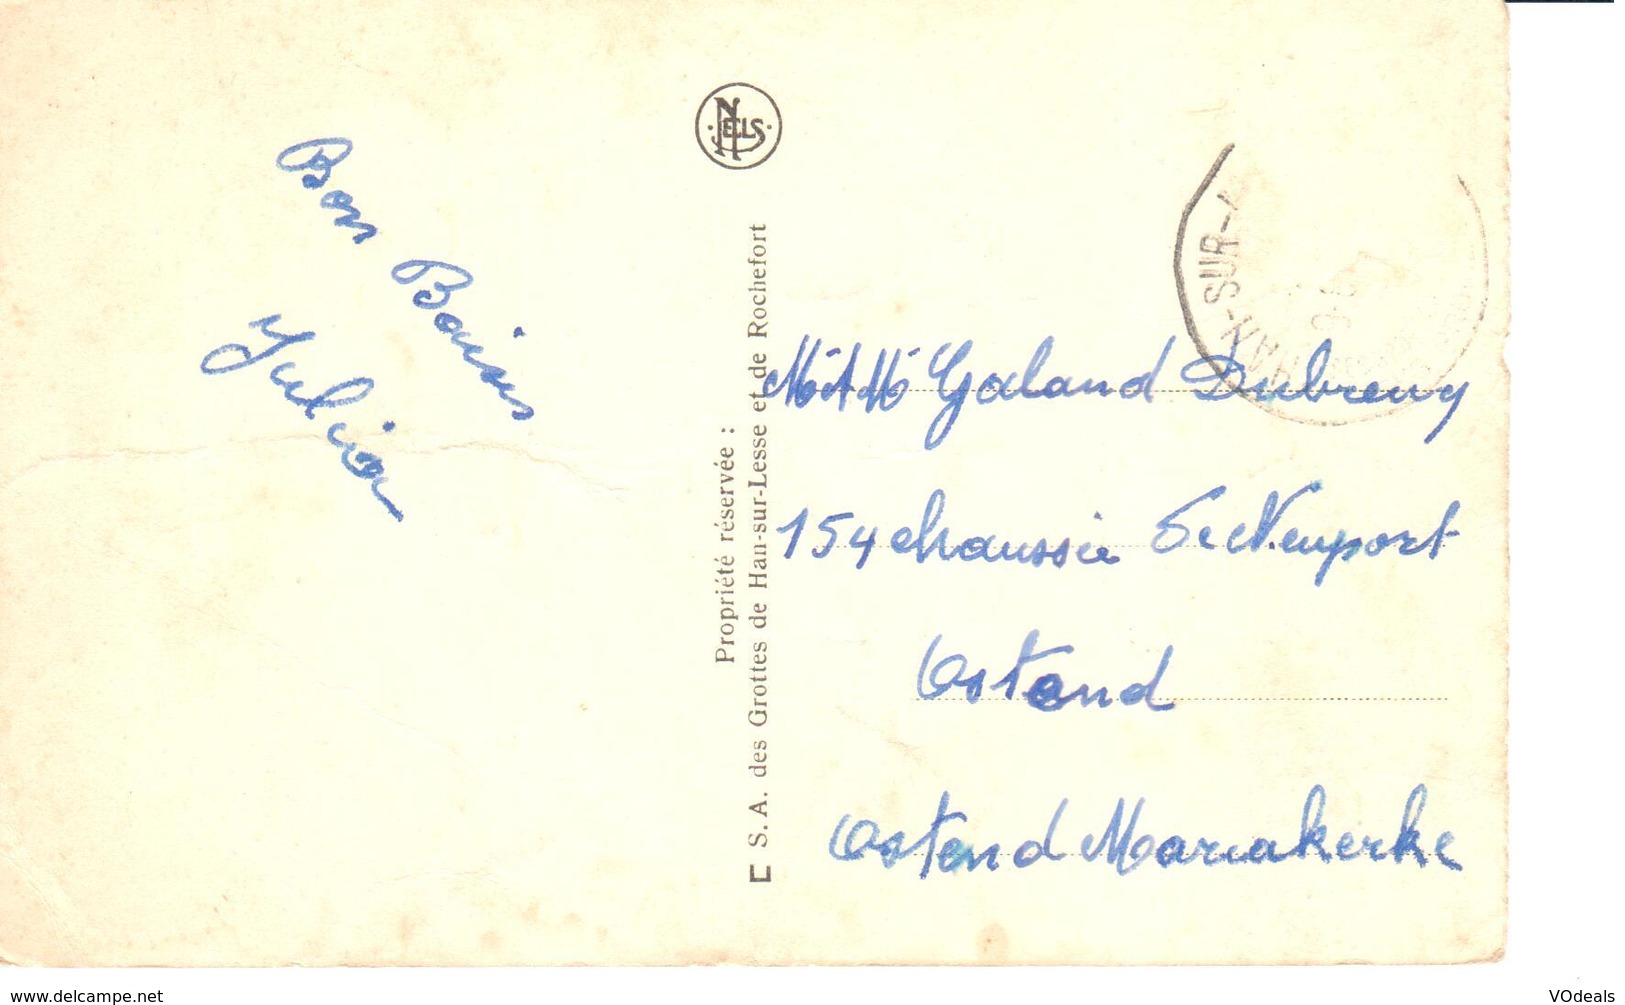 Bon Baisers
Julien
NELS
Propriété réservée :
S. A. des Grottes de Han-sur-Lesse et de Rochefort
HAN-SUR-L
M et M Galand Dubreucq
154 chaussée de Nieuport
Ostend
Ostend Mariakerke
www.delcampe.net
VOdeals